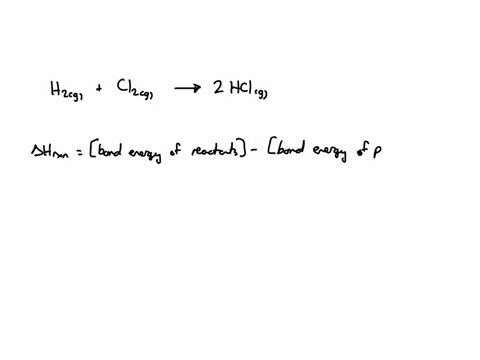 H2(g) + Cl2(g) → 2 HCl(g)
ΔHrxn = [bond energy of reactants] - [bond energy of p